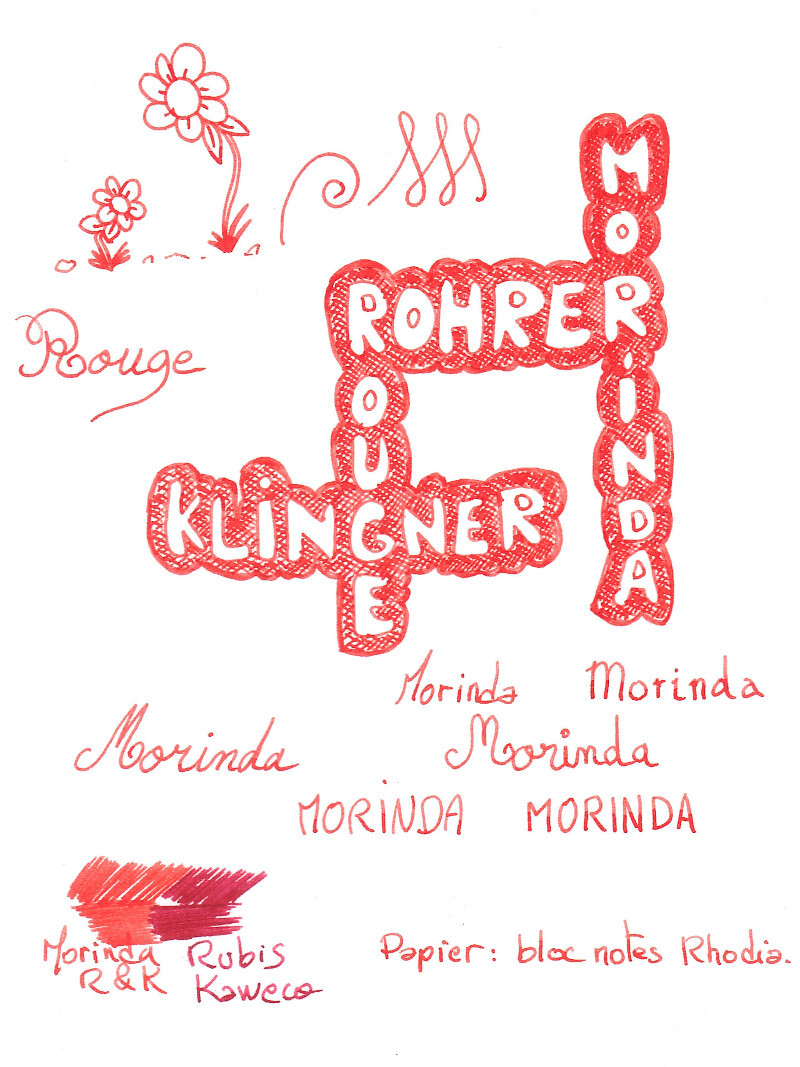 MORiNDA
ROHRER
Rouge
ROUGE
KLiNGNER
Morinda
Morinda
Morinda
Morinda
MORiNDA
MORINDA
Morinda
R&K
Rubis
Kaweco
Papier: bloc notes Rhodia.